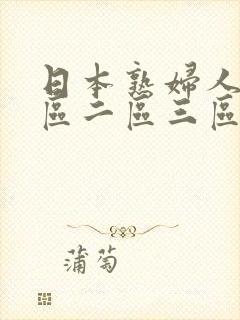 日本熟婦人
區二區三區
蒲萄